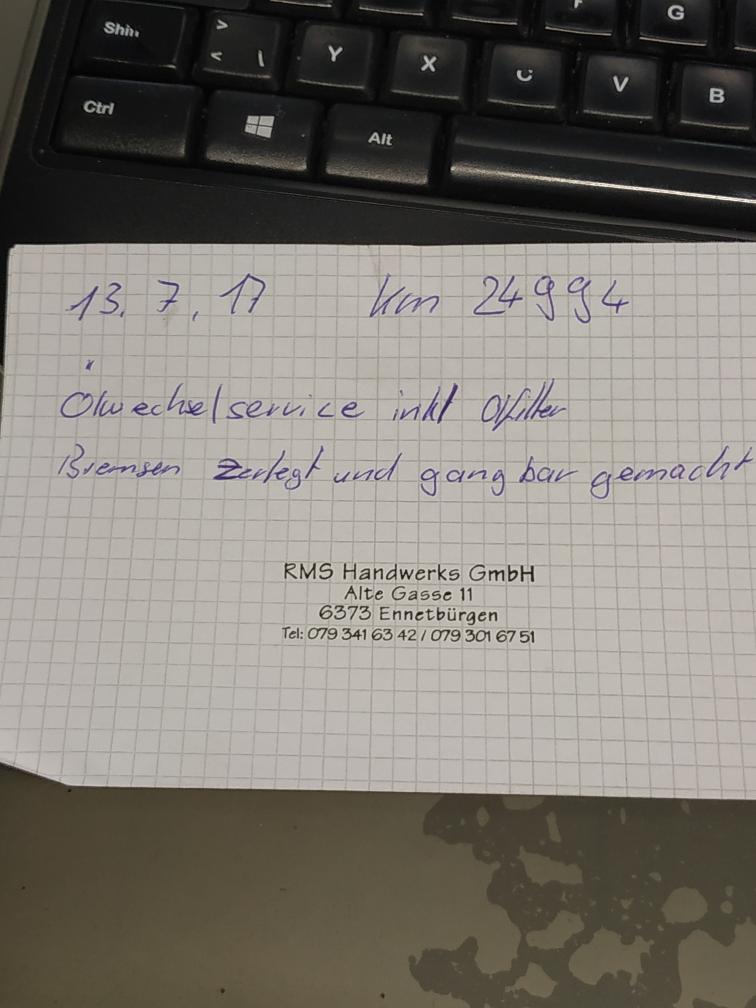 Shift
>
<
\
Y
X
C
V
B
G
F
Ctrl
Alt
13. 7. 17 km 24994
Ölwechselservice inkl Ölfilter
Bremsen zerlegt und gangbar gemacht
RMS Handwerks GmbH
Alte Gasse 11
6373 Ennetbürgen
Tel: 079 341 63 42 / 079 301 67 51